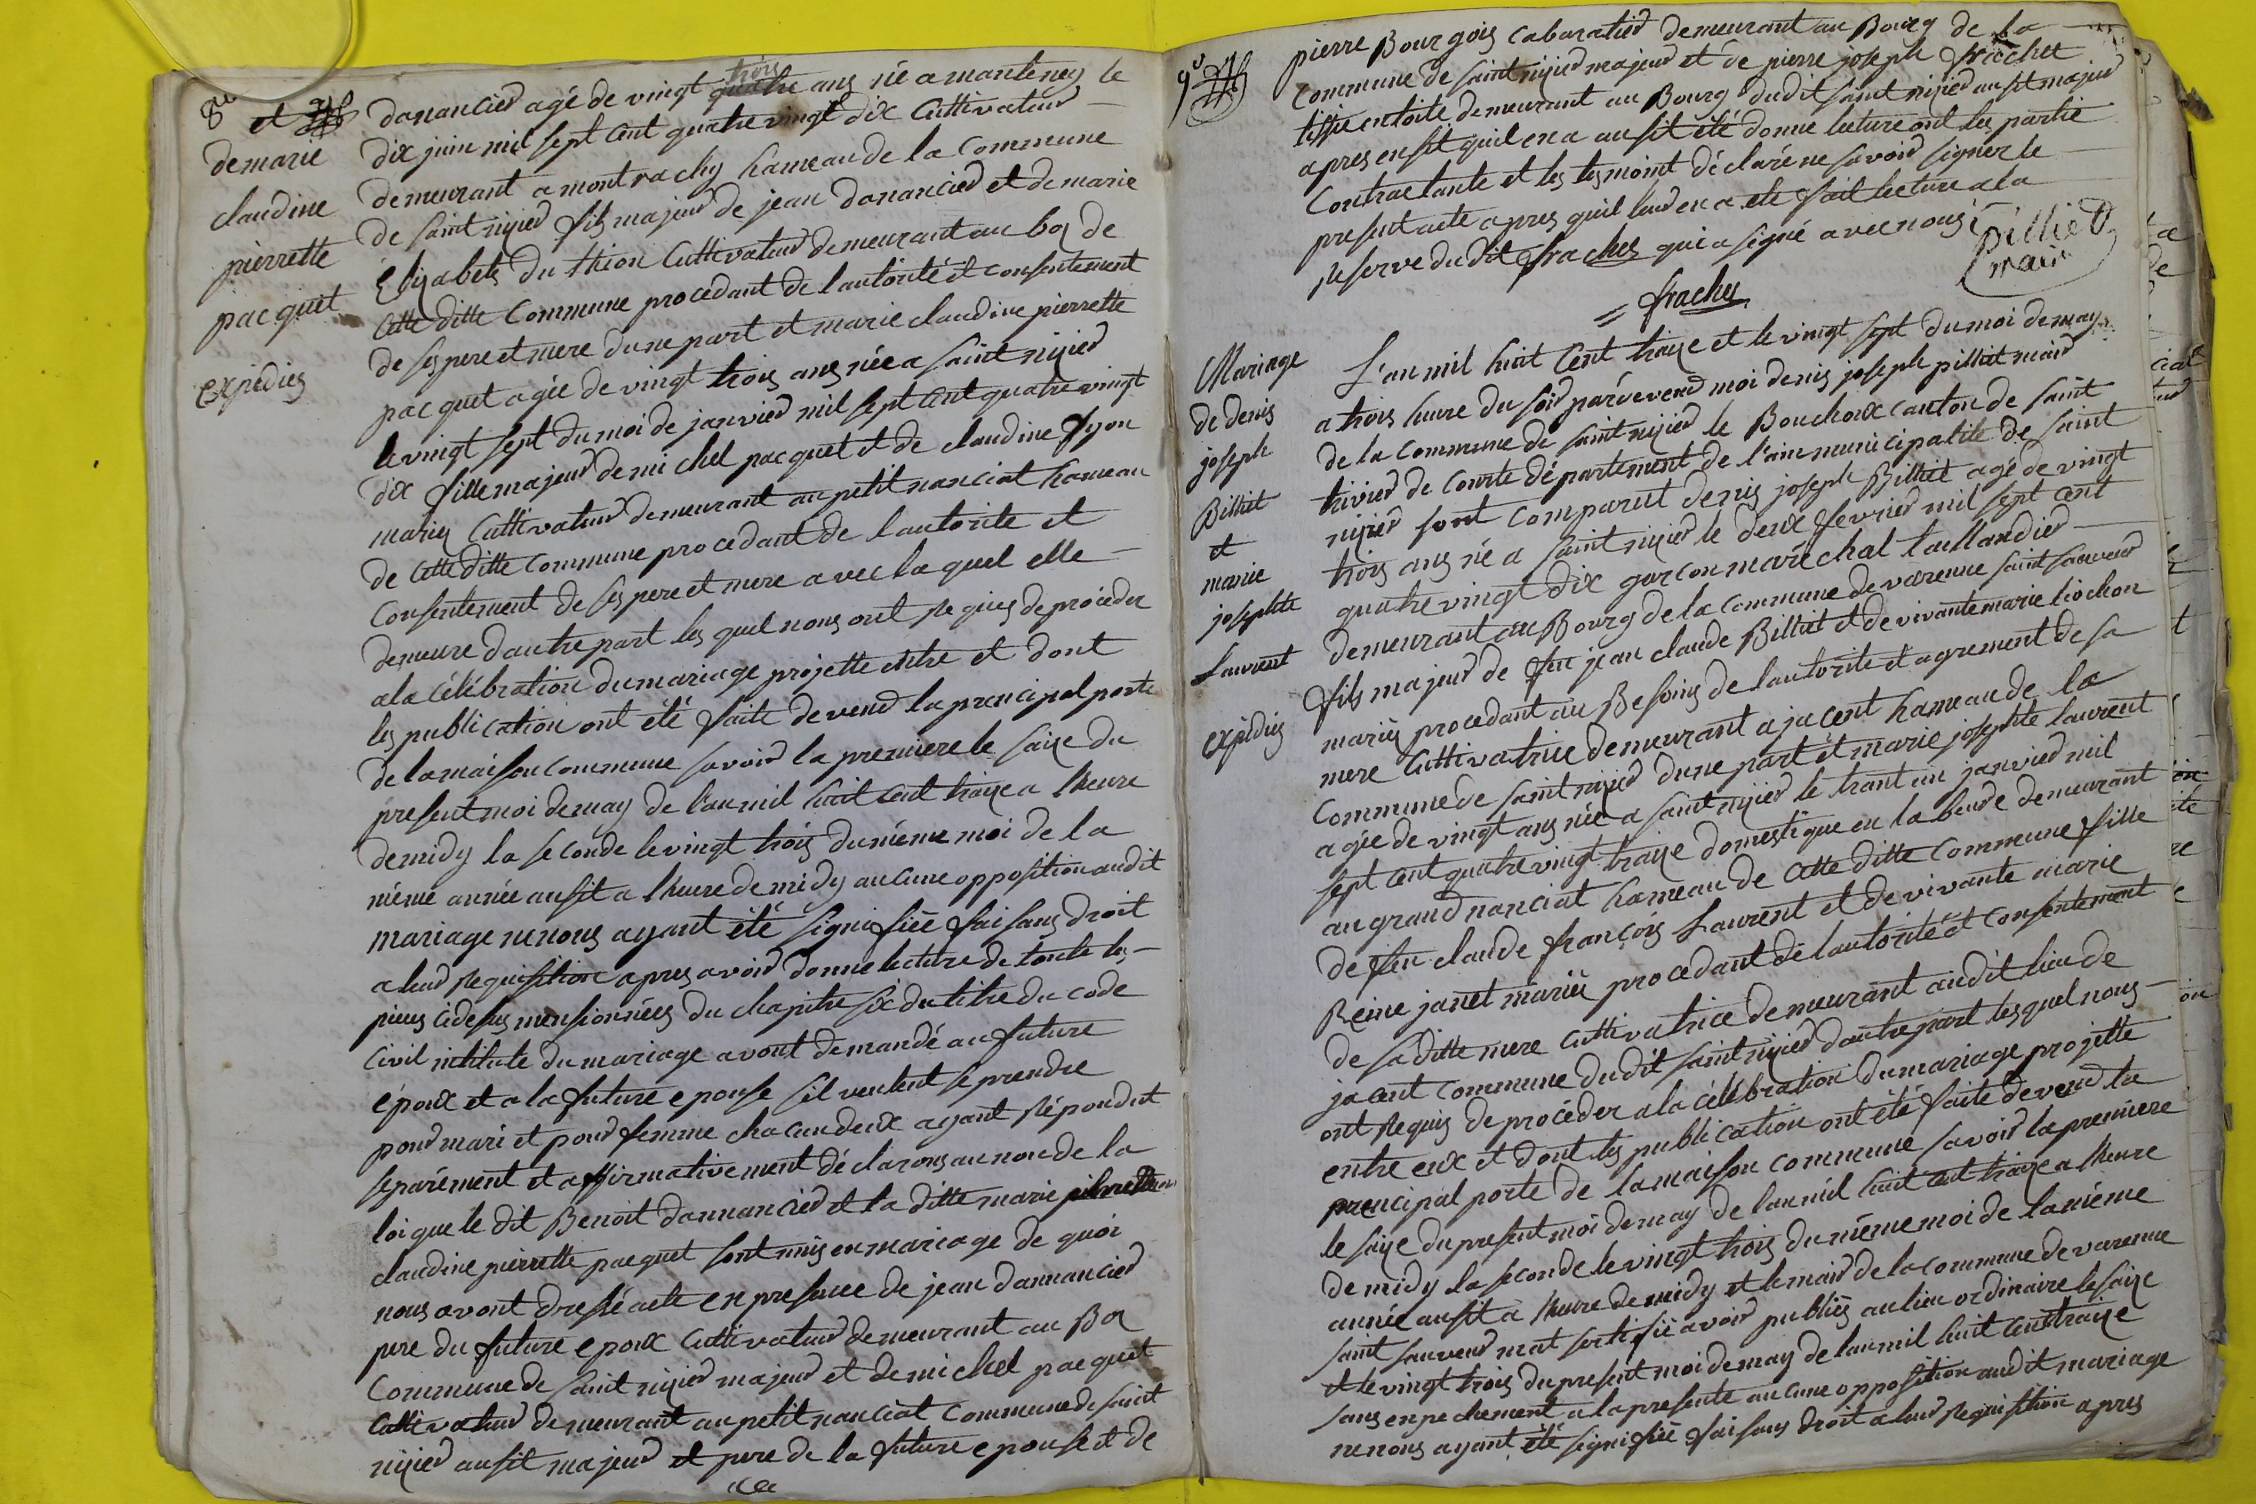 8e
et
de marie
claudine
pierrette
pacquet
expédiés
trois
danancier agé de vingt quatre ans né a mantenez le
dix juin mil sept cent quatre vingt dix Cultivateur
demeurant a montrachy hameau de la Commune
de saint nizier fils majeur de jean danancier et de marie
Elizabets du thion Cultivateur demeurant au boz de
Cette ditte Commune procedant de lautorité et consentement
de ses pere et mere dune part et marie claudine pierrette
pacquet agée de vingt trois ans née a saint nizier
le vingt sept du moi de janvier mil sept cent quatre vingt
dix fille majeur de michel pacquet et de claudine fyon
mariez Cultivateur demeurant au petit nanciat hameau
de Cette ditte Commune procedant de lautorite et
Consentement de ses pere et mere avec la quel elle
demeure dautre part les quel nous ont requis de proceder
a la célébration du mariage projette entre et dont
les publication ont été faite devend la prencipal porte
de la maison commune savoir la premiere le saize du
present moi de may de l'an mil huit cent traize a lheure
de midy la seconde le vingt trois du même moi de la
même année ausit a lheure de midy aucune opposition audit
mariage ne nous ayant été signifiée faisans droit
a leur requisition apres avoir donne lecture de toute les
pieces cidesus mensionnées du chapitre six du titre du code
Civil intitule du mariage avont demandé au future
époux et a la future epouse sil veulent se prendre
pour mari et pour femme chacun deux ayant répondut
separément et affirmativement déclarons au non de la
loi que le dit Benoit dannancier et la ditte marie
claudine pierrette pacquet sont unis en mariage de quoi
nous avont dressé acte en presence de jean dannancier
pere du future epoux Cultivateur demeurant au Boz
Commune de saint nizier majeur et de michel pacquet
Cultivateur demeurant au petit nanciat Commune de saint
nizier ausit majeur et pere de la future epouse et de
9e
pierre Bourgois cabaratier demeurant au Bourg de la
Commune de saint nizier majeur et de pierre joseph frachet
tissié en toile demeurant au Bourg dudit saint nizier ausit majeur
apres ensit quil en a ausit été donne lecture ont les partie
Contractante et les tesmoint déclaré ne savoir signer le
present acte apres quil leur en a ete fait lecture a la
reserve du dit frachez qui a signé avec nous
pilliet
mair
= frachez
Mariage
de denis
joseph
Billiet
et
marie
josephte
Laurent
expédiés
L'an mil huit cent traize et le vingt sept du moi de may
a trois heure du soir parévevend moi denis joseph pilliet mair
de la Commune de saint nizier le Bouchoux canton de saint
trivier de courte département de l'ain municipalite de saint
nizier sont comparut denis joseph Billiet agé de vingt
trois ans né a saint nizier le deux fevrier mil sept cent
quatre vingt dix garcon maréchal taillandier
demeurant au Bourg de la commune de varenne saint sauveur
fils majeur de feu jean claude Billiet et de vivante marie liochon
mariés procedant au Besoins de lautorite et agrement de sa
mere Cultivatrice demeurant a jacent hameau de la
Commune de saint nizier dune part et marie josephte laurent
agée de vingt ans née a saint nizier le trant un janvier mil
sept cent quatre vingt traize domestique en la beure demeurant
au grand nanciat hameau de Cette ditte Commune fille
de feu claude françois Laurent et de vivante marie
Reine janet mariés procedant de lautorité et consentement
de sa ditte mere cultivatrice demeurant audit lieu de
jacent commune dudit saint nizier dautre part lesquel nous
ont requis de procéder a la célébration du mariage projette
entre eux et dont les publication ont été faite devend la
prencipal porte de la maison commune savoir la premiere
le saize du present moi de may de l'an mil huit cent traize a lheure
de midy la seconde le vingt trois du même moi de la même
année ausit a lheure de midy et le mair de la commune de varenne
saint sauveur mat sertifié avoir publiés au lieu ordinaire le saize
et le vingt trois du present moi de may de l'an mil huit cent traize
sans enpechement a la presente aucune opposition audit mariage
ne nous ayant été signifiée faisans droit a leur requisition apres